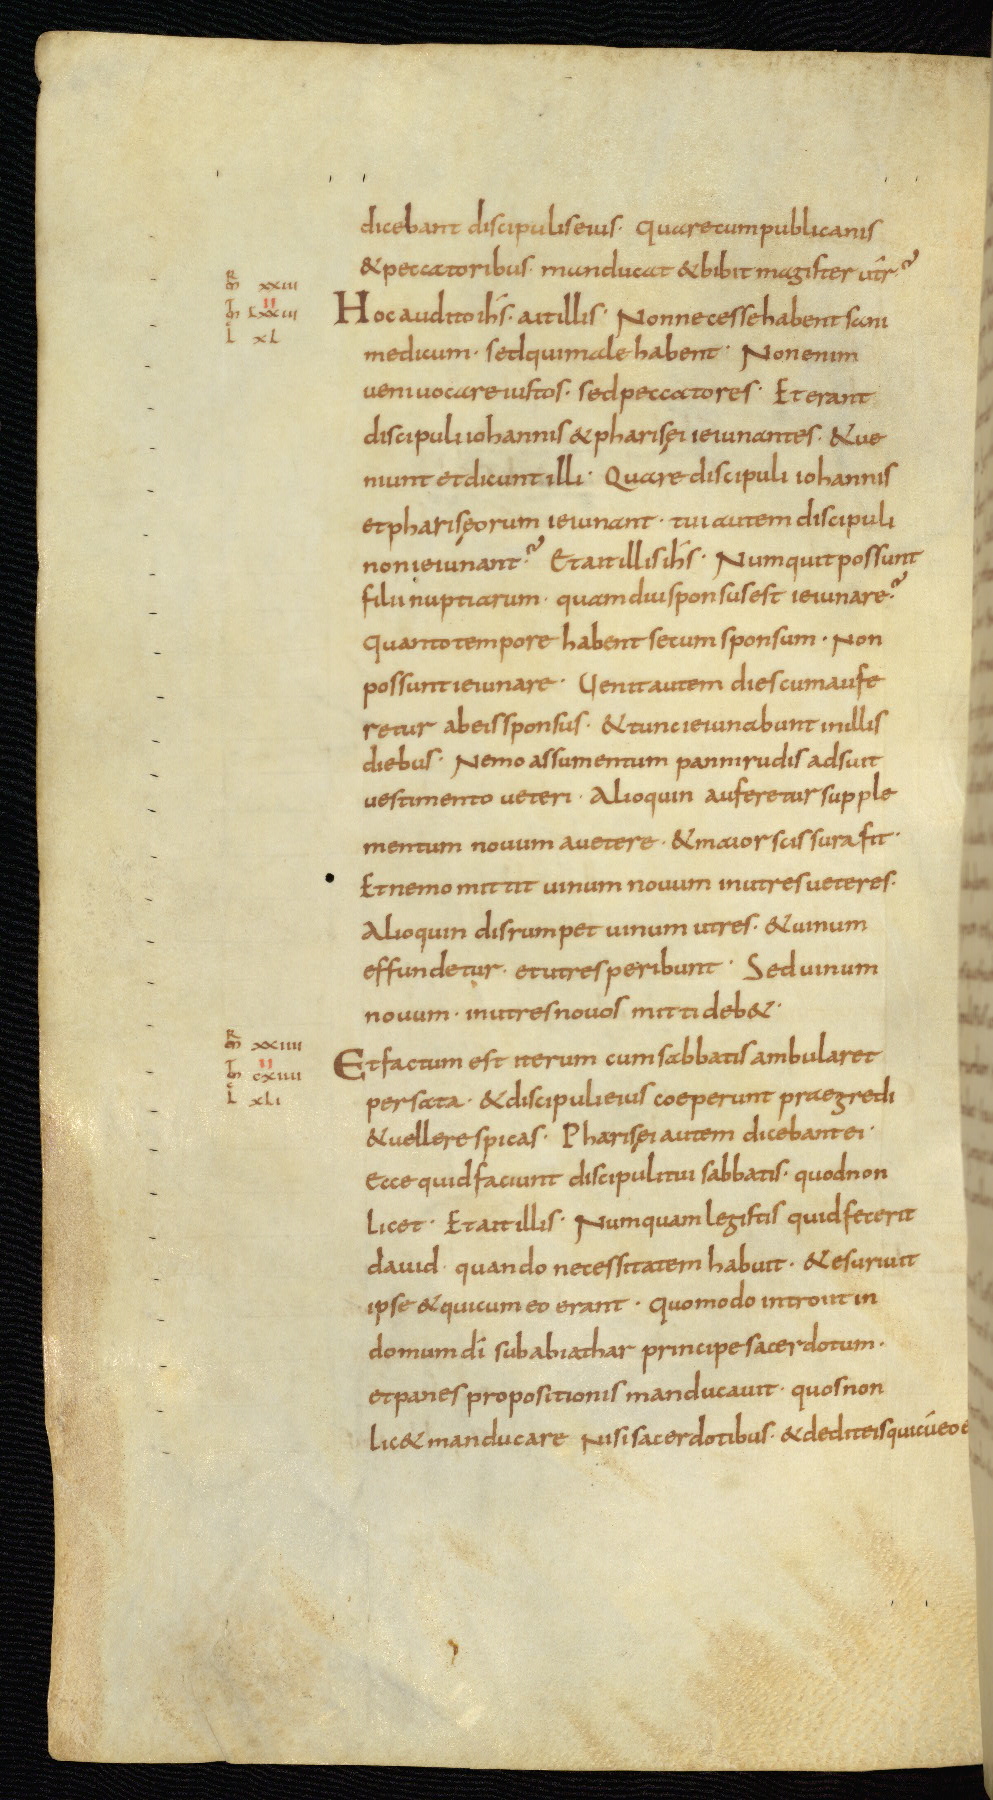 dicebant discipulis eius· Quare cum publicanis
& peccatoribus· manducat & bibit magister ur̄?
mr̄ xxiii
Hoc audito ihs̄· ait illis· Non necesse habent sani
mt̄ lxxiii
II
l xl
medicum· sed qui male habent· Non enim
ueni uocare iustos· sed peccatores· Et erant
discipuli iohannis & pharisęi ieiunantes· & ue
niunt et dicunt illi· Quare discipuli iohannis
et pharisęorum ieiunant· tui autem discipuli
non ieiunant? Et ait illis ihs̄· Numquit possunt
filii nuptiarum· quamdiu sponsus est ieiunare?
Quanto tempore habent secum sponsum· Non
possunt ieiunare· Uenit autem dies cum aufe
retur ab eis sponsus· & tunc ieiunabunt in illis
diebus· Nemo assumentum panni rudis adsuit
uestimento ueteri· Alioquin auferetur supple
mentum nouum a uetere· & maior scissura fit·
Et nemo mittit uinum nouum in utres ueteres·
Alioquin disrumpet uinum utres· & uinum
effundetur· et utres peribunt· Sed uinum
nouum· in utres nouos mitti deb&·
mr̄ xxiiii
Et factum est iterum cum sabbatis ambularet
mt̄ cxiiii
II
l xli
per sata· & discipuli eius coeperunt praegredi
& uellere spicas· Pharisęi autem dicebant ei·
Ecce quid faciunt discipuli tui sabbatis· quod non
licet· Et ait illis· Numquam legistis quid fecerit
dauid· quando necessitatem habuit· & esuriuit
ipse & qui cum eo erant· Quomodo introiit in
domum dī sub abiathar principe sacerdotum·
et panes propositionis manducauit· quos non
lic& manducare Nisi sacerdotibus· & dedit eis qui cū eo e